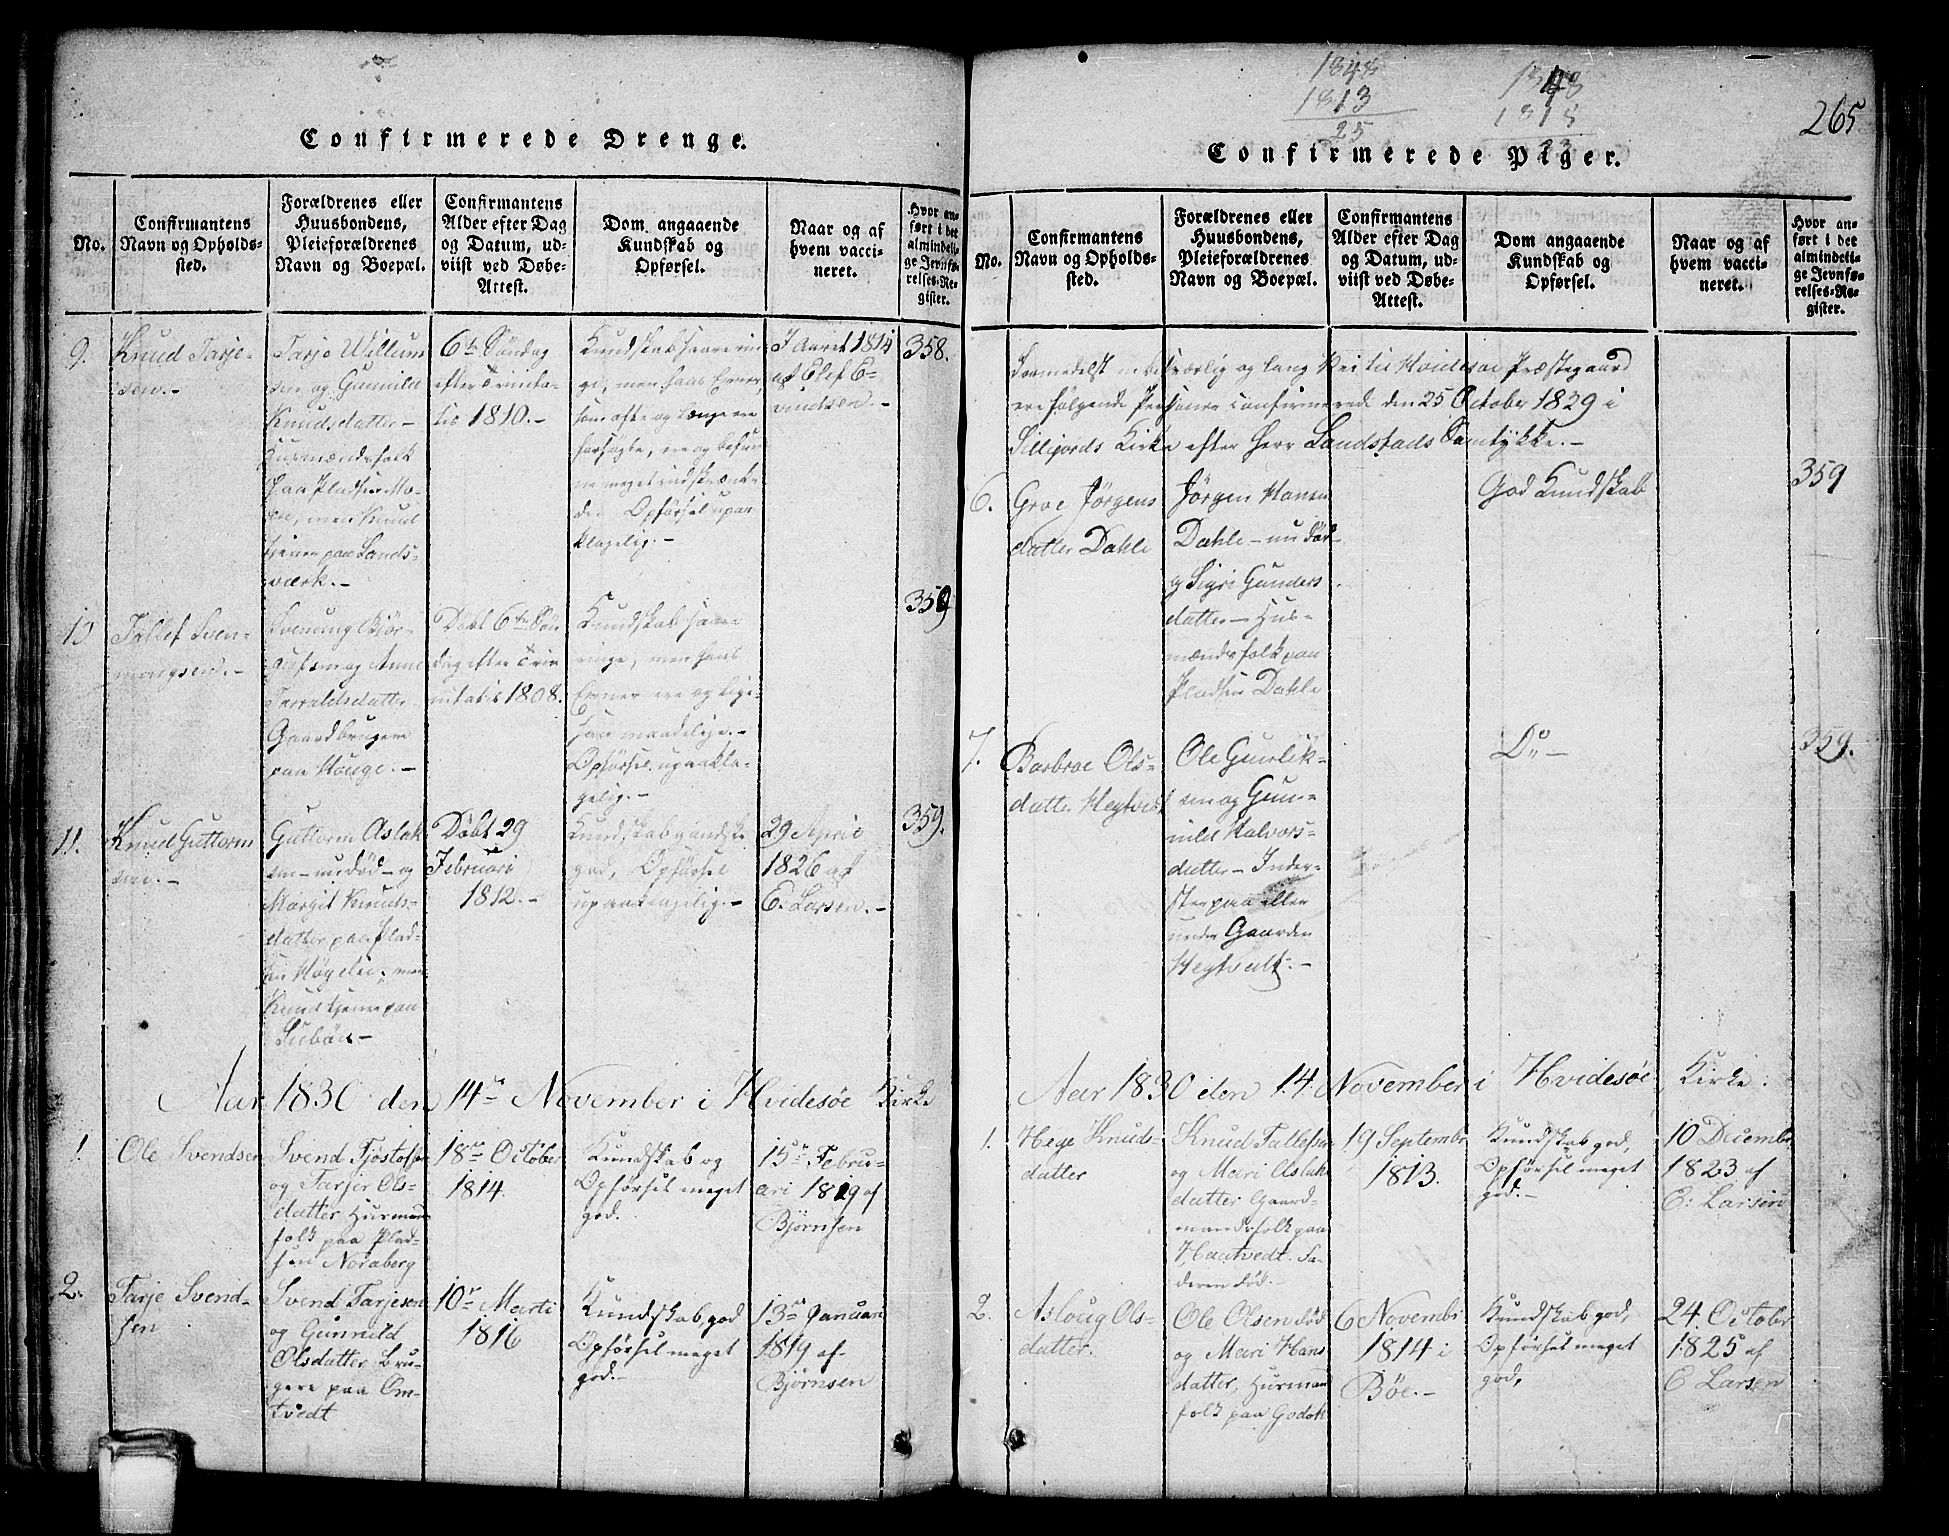 Confirmerede Drenge.
No.
Confirmantens
Navn og Opholds-
sted.
Forældrenes eller
Huusbondens,
Pleieforældrenes
Navn og Boepæl.
Confirmantens
Alder efter Dag
og Datum, ud-
viist ved Døbe-
Attest.
Dom angaaende
Kundskab og
Opførsel.
Naar og af
hvem vacci-
neret.
Hvor an-
ført i det
almindeli-
ge Jevnfø-
relses-Re-
gister.
9.
Knud Tarje-
sen.-
Tarje Willum
sen og Gunnild
Knudsdatter-
Huusmændsfolk
paa Pladsen
men Knud
tjener paa Lands-
værk.-
6te Søndag
efter Trinita-
tis 1810.-
Kundskab saare rin-
ge, men hans Evner,
som ofte og længe ere
forsøgte, ere og befun-
ne meget indskrænke-
de. Opførsel upaa-
klagelig.-
I Aaret 1814
af Elef E-
vindsen.-
358.
10
Tallef Sven-
ningsen.-
Svenning Bjør-
gufsen og Anne
Tarraldsdatter
Gaardbrugere
paa Houge.-
Døbt 6te Søn
dag efter Trin
nitatis 1808.
Kundskab saare
ringe, men hans
Evner ere og lige-
saa maadelige.-
Opførsel upaakla-
gelig.-
359
11.
Knud Guttorm
sen.-
Guttorm Aslak
sen-nu død-og
Margit Knuds-
datter paa Plad-
sen Høgelie, men
Knud tjener paa
Døbt 29
Februari
1812.-
Kundskab ganske
god, Opførsel
upaaklagelig.-
29 Aprii
1826 af
E: Larsen.-
359.
Aar 1830 den 14de November i Hvidesøe Kirke
1.
Ole Svendsen
Svend Tjøstofsen
og Tarjer Ols-
datter Husmans
folk paa Plad-
sen Noraberg
18de October
1814.
Kundskab og
Opførsel meget
god.
15de Febru-
ari 1819 af
Bjørnsen
2.
Tarje Svend-
sen
Svend Tarjesen
og Gunnild
Olsdatter Bru-
gere paa Om-
tvedt
10de Marti
1816
Kundskab god
Opførsel meget
god.-
13de Januari
1819 af-
Bjørnsen
1848
1813
25
1848
1815
23
265
Confirmerede Piger.
No.
Confirmantens
Navn og Opholds-
sted.
Forældrenes eller
Huusbondens,
Pleieforældrenes
Navn og Boepæl.
Confirmantens
Alder efter Dag
og Datum, ud-
viist ved Døbe-
Attest.
Dom angaaende
Kundskab og
Opførsel.
Naar og af
hvem vacci-
neret.
Hvor an-
ført i det
almindeli-
ge Jevnfø-
relses-Re-
gister.
Formedelst en besværlig og lang Vei til Hvidesøe Præstegaard
ere følgende Personer confirmerede den 25 October 1829 i
Sillejords Kirke efter Herr Landstads Samtykke.-
6.
Groe Jørgens
datter Dahle
Jørgen Hansen
Dahle-nu død-
og Sigri Gunders
datter-Hus-
mændsfolk paa
Pladsen Dahle
God Kundskab
359
7.
Barbroe Ols-
datter Hegtvedt
Ole Gunlik-
sen og Gun-
nild Halvors-
datter-Inder-
ster paa eller
under Gaarden
Hegtvedt.-
Do-
359.
Aar 1830 den 14. November i Hvidesøe Kirke.
1.
Hege Knuds-
datter
Knud Tallefsen
og Mari Aslak
datter Gaard-
mandsfolk paa
Haatvedt. Fa-
deren død.-
19 Septembr
1813.
Kundskab god,
Opførsel meget
god.-
10 Decembr
1823 af
E: Larsen
2.
Asloug Ols-
datter.
Ole Olsen død
og Mari Hans
datter, Husman
folk paa Godok
6 Novembr
1814 i
Bøe.-
Kundskab god,
Opførsel meget
god,
24. October
1825 af
E Larsen